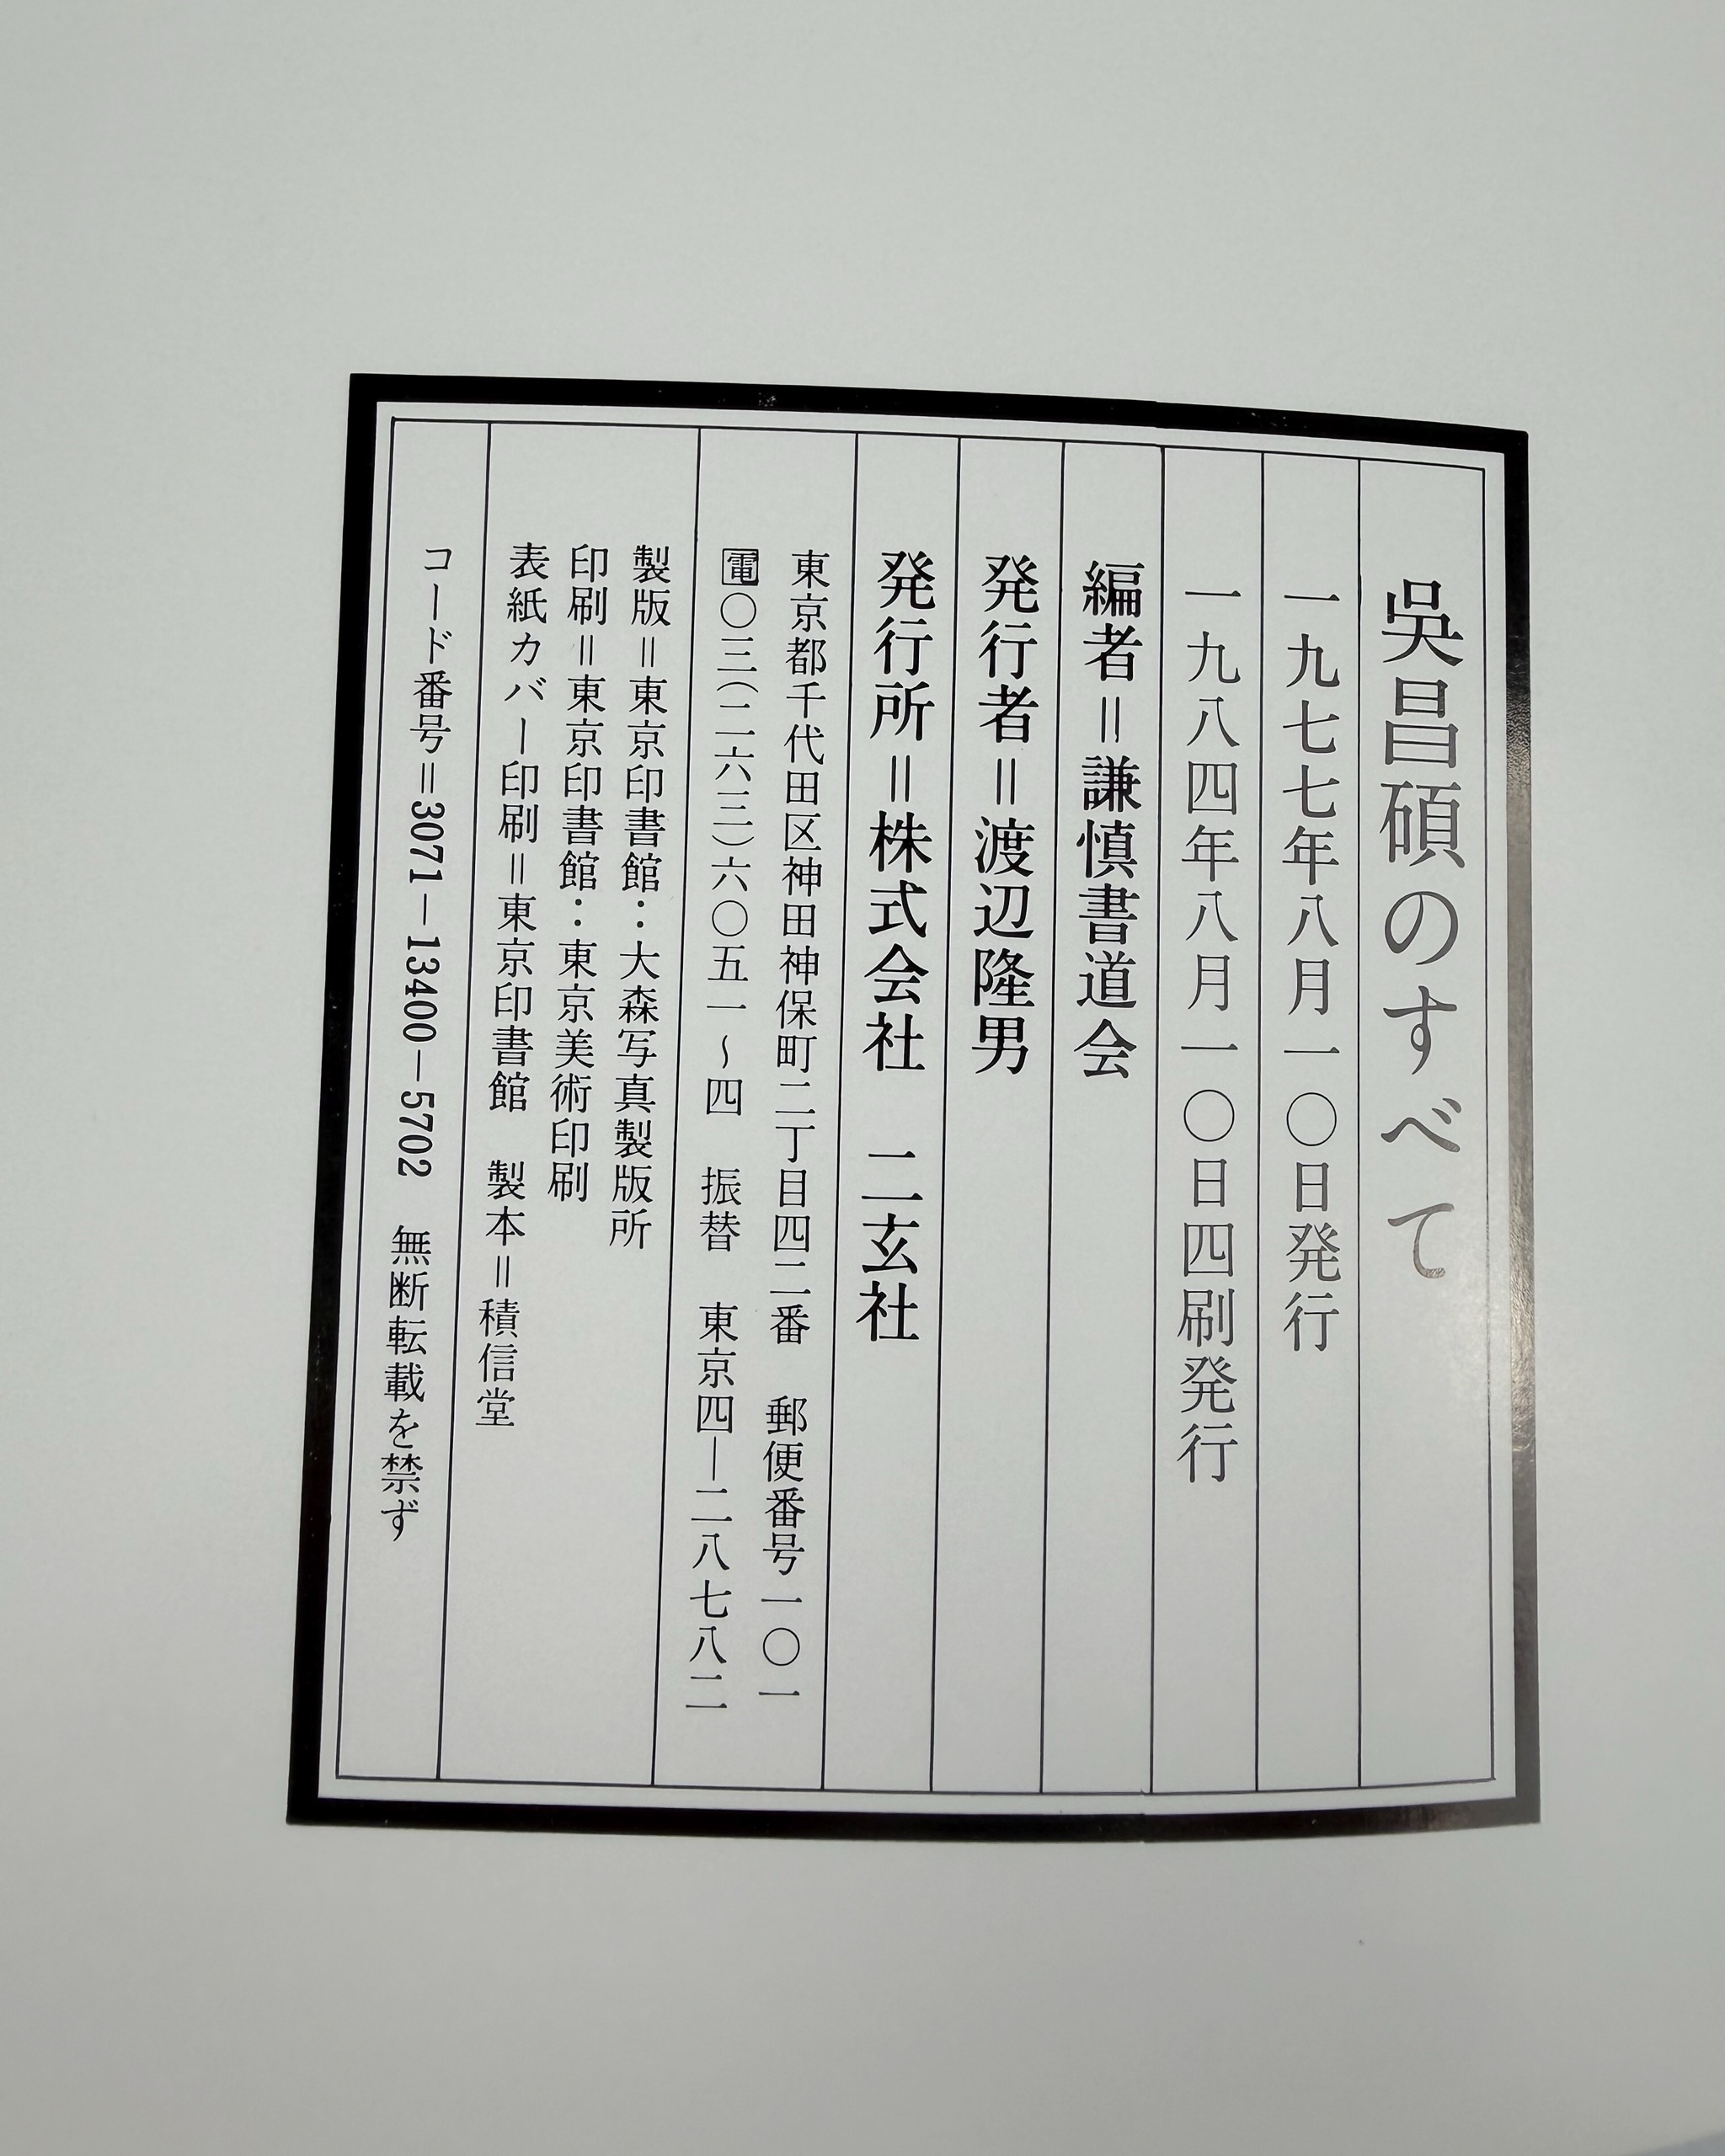 吳昌碩のすべて
一九七七年八月一〇日発行
一九八四年八月一〇日四刷発行
編者＝謙慎書道会
発行者＝渡辺隆男
発行所＝株式会社　二玄社
東京都千代田区神田神保町二丁目四二番　郵便番号一〇一
電〇三(二六三)六〇五一～四　振替　東京四―二八七八二
製版＝東京印書館：大森写真製版所
印刷＝東京印書館：東京美術印刷
表紙カバー印刷＝東京印書館　製本＝積信堂
コード番号＝3071―13400―5702　無断転載を禁ず